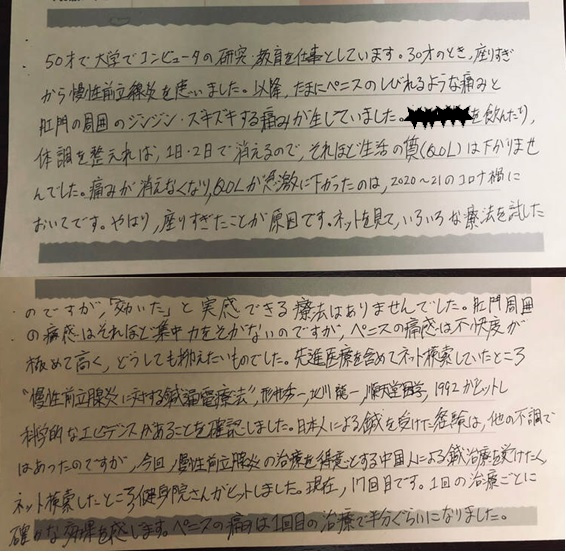 50才で大学でコンピュータの研究・教育を仕事としています。30才のとき、座りすぎ
から慢性前立腺炎を患いました。以降、たまにペニスのしびれるような痛みと
肛門の周囲のジンジン・ズキズキする痛みが生じていました。を飲んだり,
体調を整えれば、1日・2日で消えるので、それほど生活の質(QOL)は下がりませ
んでした。痛みが消えなくなり,QOLが急激に下がったのは、2020~21のコロナ禍に
おいてです。やはり、座りすぎたことが原因です。ネットを見て、いろいろな療法を試した
のですが、「効いた」と実感できる療法はありませんでした。肛門周囲
の痛感はそれほど集中力をそがないのですが、ペニスの痛感は不快度が
極めて高く、どうしても抑えたいものでした。先進医療を含めてネット検索していたところ
"慢性前立腺炎に対する鍼通電療法", 北川龍一, 順天堂医学, 1992がヒットし
科学的なエビデンスがあることを確認しました。日本人による鍼を受けた経験は、他の不調で
はあったのですが、今回、慢性前立腺炎の治療を得意とする中国人による鍼治療を受けたく
ネット検索したところ健身院さんがヒットしました。現在、17回目です。1回の治療ごとに
確かな効果を感じます。ペニスの痛みは1回目の治療で半分ぐらいになりました。